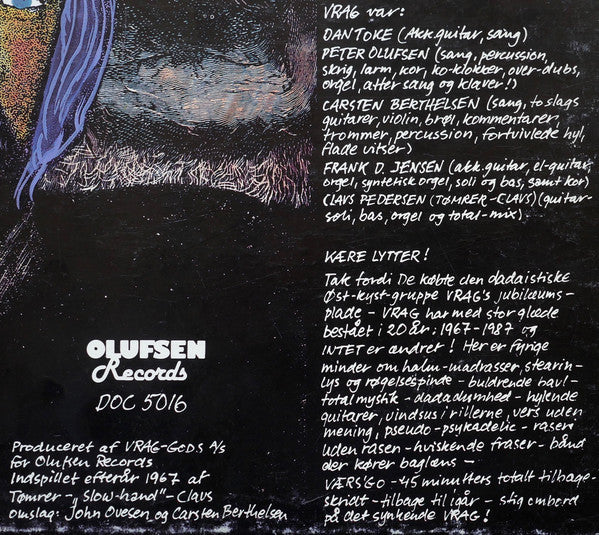 VRAG var:
DAN TOKE (Akk.guitar, sang)
PETER OLUFSEN (sang, percussion,
skrig, larm, kor, ko-klokker, over-dubs,
orgel, atter sang og klaver!)
CARSTEN BERTHELSEN (sang, to slags
guitarer, violin, brøl, kommentarer,
trommer, percussion, fortvivlede hyl,
flade vitser)
FRANK D. JENSEN (akk.guitar, el-guitar,
orgel, synterisk orgel, soli og bas, samt kor)
CLAUS PEDERSEN (TØMRER-CLAUS) (guitar-
soli, bas, orgel og total-mix)
KÆRE LYTTER!
Tak fordi De købte den dadaistiske
Øst-kyst-gruppe VRAG's jubilæums-
plade - VRAG har med stor glæde
bestået i 20 år: 1967-1987 og
INTET er ændret! Her er fyrige
minder om halm-madrasser, stearin-
lys og røgelsespinde - buldrende bavl-
total mystik - dadadumhed - hylende
guitarer, vindsus i rillerne, vers uden
mening, pseudo-psykadelic - raseri
uden rasen - hviskende fraser - bånd
der kører baglæns -
VÆRS'GO - 45 minutters totalt tilbage-
skridt - tilbage til igår - stig ombord
på det synkende VRAG!
OLUFSEN
Records
DOC 5016
Produceret af VRAG-GODS A/s
for Olufsen Records
Indspillet efterår 1967 af
Tømrer-„slow-hand"-Claus
Omslag: John Ovesen og Carsten Berthelsen